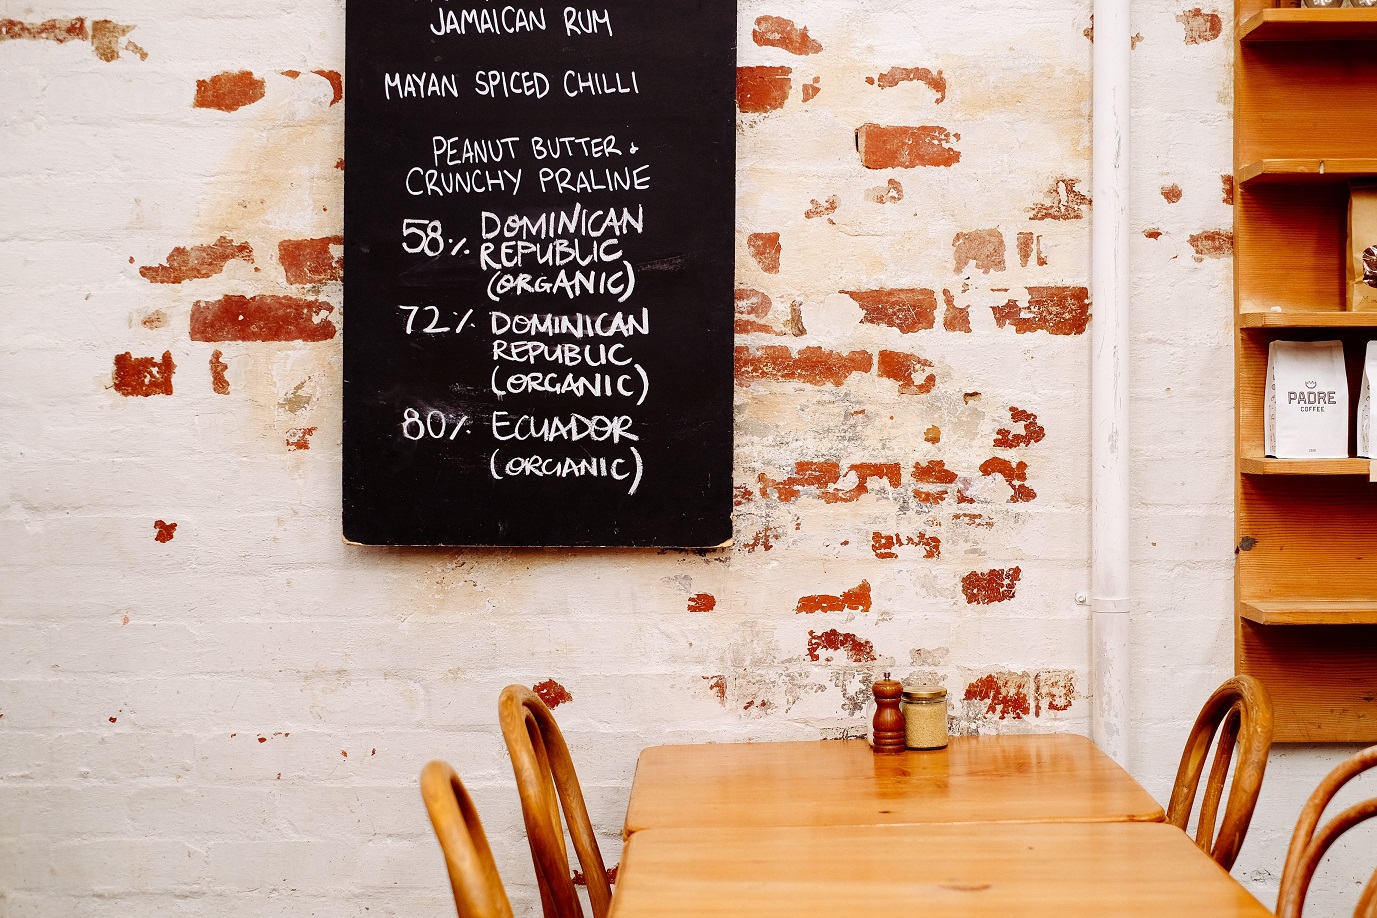 JAMAICAN RUM
MAYAN SPICED CHILLI
PEANUT BUTTER &
CRUNCHY PRALINE
58% DOMINICAN
REPUBLIC
(ORGANIC)
72% DOMINICAN
REPUBLIC
(ORGANIC)
80% ECUADOR
(ORGANIC)
PADRE
COFFEE